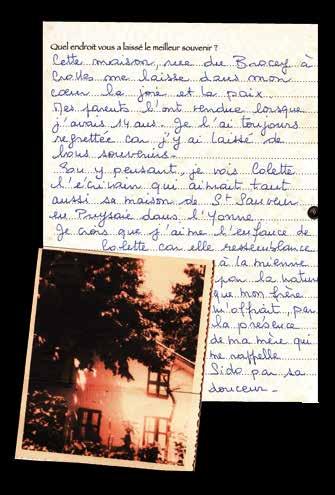 Quel endroit vous a laissé le meilleur souvenir ?
Cette maison, rue du Brocey à
Crolles me laisse dans mon
cœur la joie et la paix.
Mes parents l'ont vendue lorsque
j'avais 14 ans. Je l'ai toujours
regrettée car j'y ai laissé de
bons souvenirs.
En y pensant, je vois Colette
l'écrivain qui aimait tant
aussi sa maison de St Sauveur
en Puysaie dans l'Yonne.
Je crois que j'aime l'enfance de
Colette car elle ressemblance
à la mienne
par la nature
que mon frère
m'offrait, par
la présence
de ma mère qui
me rappelle
Sido par sa
douceur.